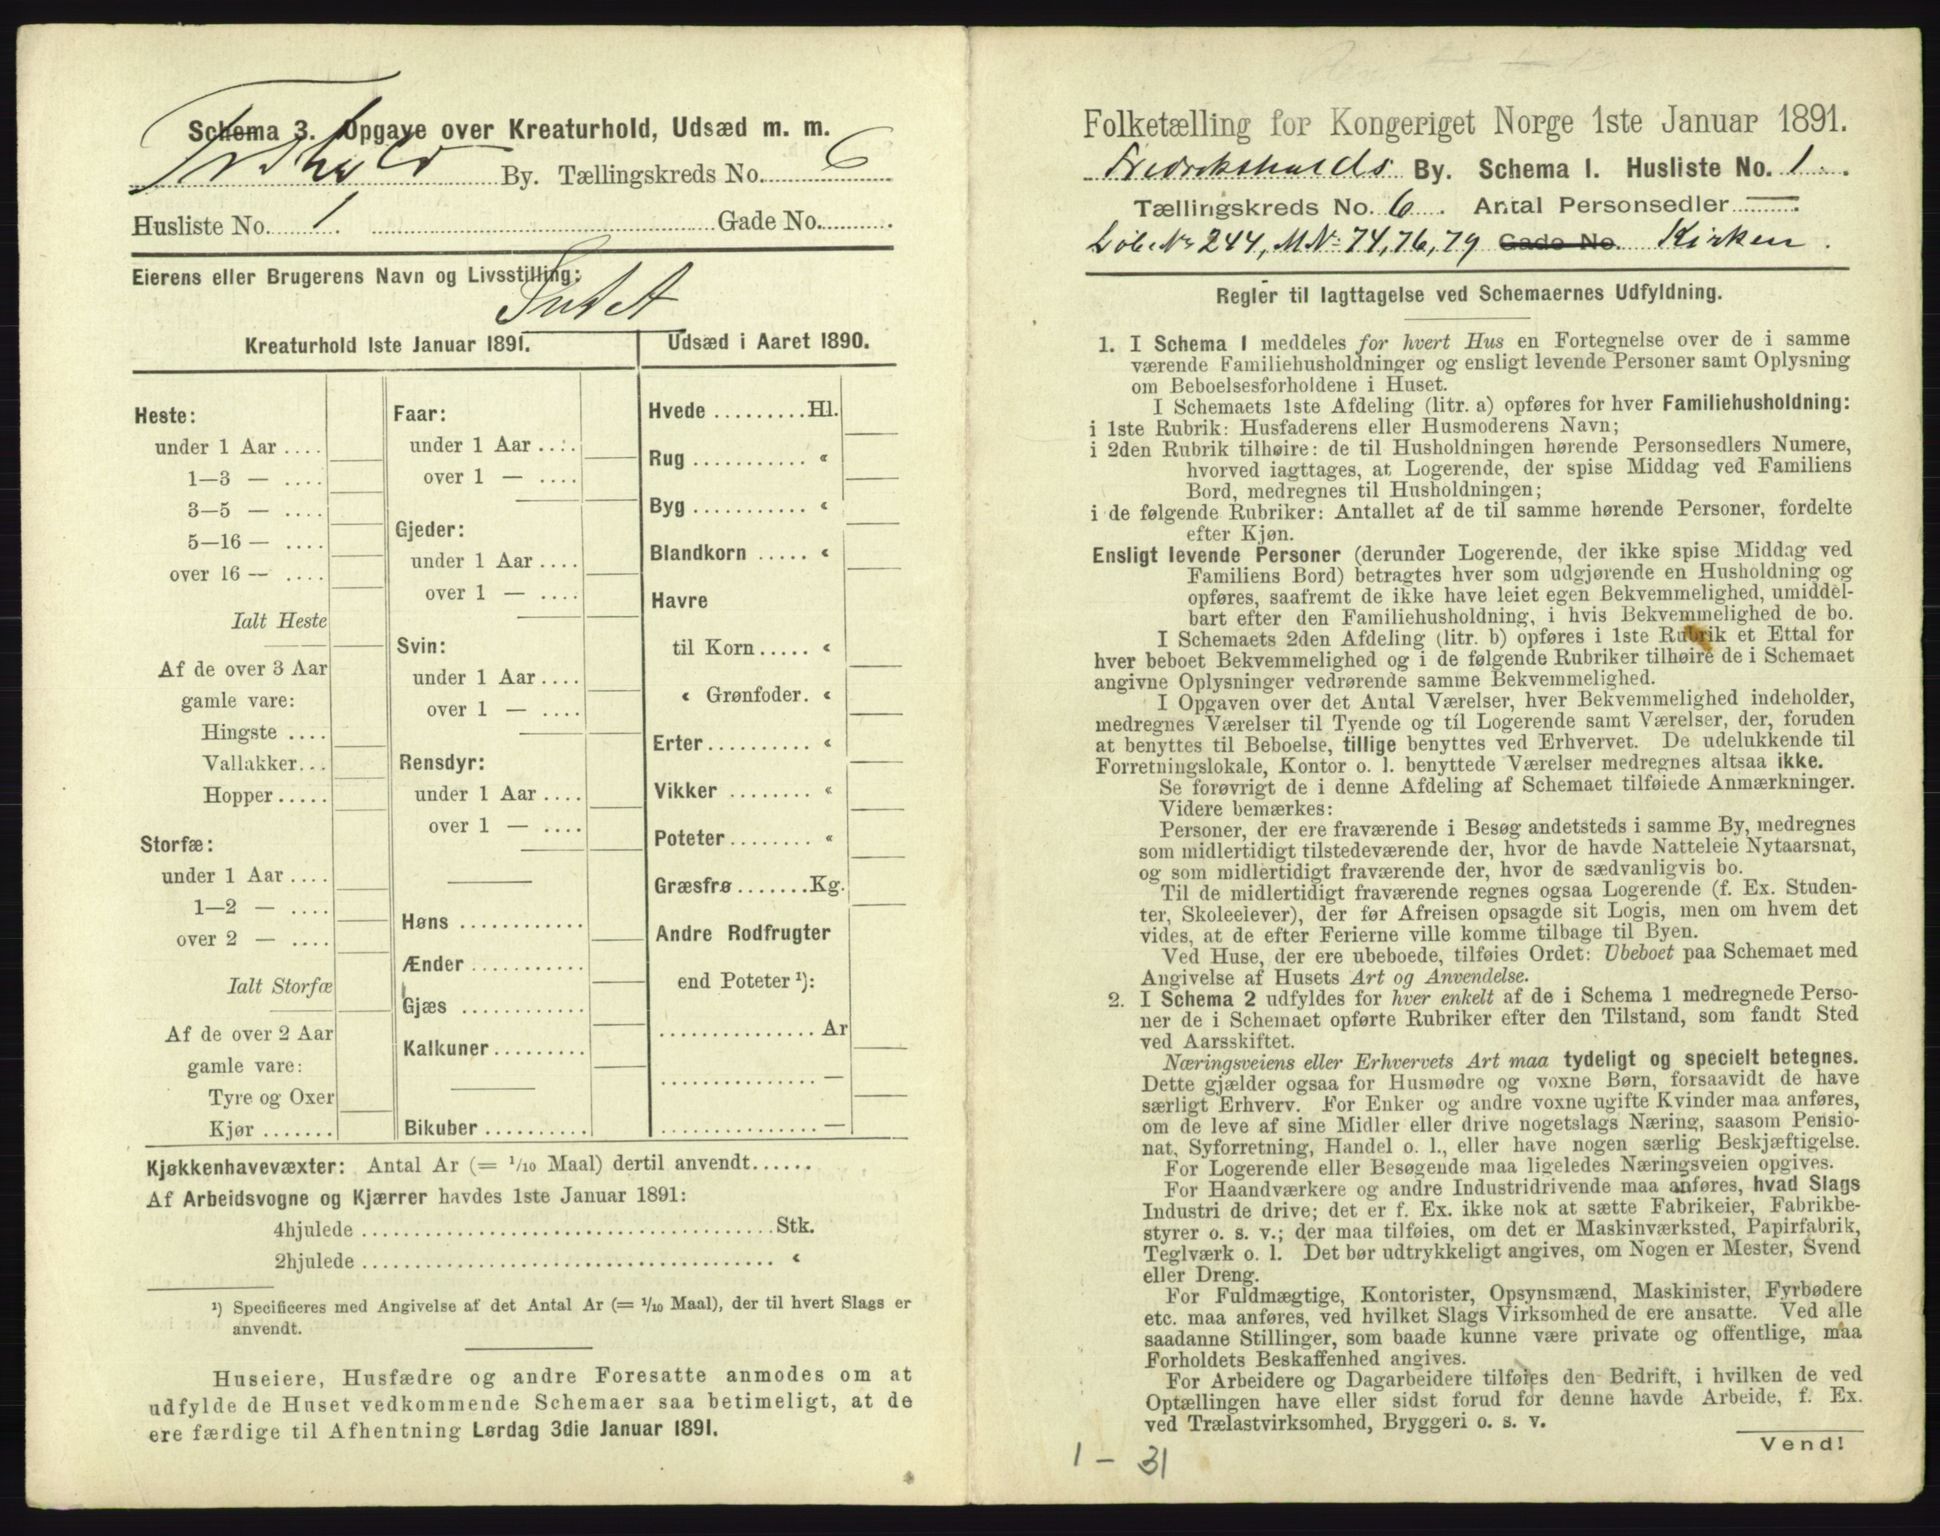 Schema 3. Opgave over Kreaturhold, Udsæd m. m.
Frdhald By. Tællingskreds No. 6
Husliste No. 1 Gade No.
Eierens eller Brugerens Navn og Livsstilling:
Intet
Kreaturhold 1ste Januar 1891.
Heste:
under 1 Aar ....
1—3 — ....
3—5 — ....
5—16 — ....
over 16 — ....
Ialt Heste
Af de over 3 Aar
gamle vare:
Hingste ....
Vallakker...
Hopper.....
Storfæ:
under 1 Aar ....
1—2 — ....
over 2 — ....
Ialt Storfæ
Af de over 2 Aar
gamle vare:
Tyre og Oxer
Kjør .......
Faar:
under 1 Aar ....
over 1 — ....
Gjeder:
under 1 Aar ....
over 1 — ....
Svin:
under 1 Aar ....
over 1 — ....
Rensdyr:
under 1 Aar ....
over 1 — ....
Høns ............
Ænder ...........
Gjæs ............
Kalkuner.........
Bikuber ..........
Udsæd i Aaret 1890.
Hvede .........Hl.
Rug ........... «
Byg ........... «
Blandkorn ..... «
Havre
til Korn..... «
« Grønfoder. «
Erter.......... «
Vikker ........ «
Poteter........ «
Græsfrø.......Kg.
Andre Rodfrugter
end Poteter ¹):
............... Ar
............... —
............... —
Kjøkkenhavevæxter: Antal Ar (= 1/10 Maal) dertil anvendt......
Af Arbeidsvogne og Kjærrer havdes 1ste Januar 1891:
4hjulede ........................................Stk.
2hjulede ........................................ «
¹) Specificeres med Angivelse af det Antal Ar (= 1/10 Maal), der til hvert Slags er
anvendt.
Huseiere, Husfædre og andre Foresatte anmodes om at
udfylde de Huset vedkommende Schemaer saa betimeligt, at de
ere færdige til Afhentning Lørdag 3die Januar 1891.
Folketælling for Kongeriget Norge 1ste Januar 1891.
Fredrikshalds By. Schema I. Husliste No. 1.
Tællingskreds No. 6. Antal Personsedler —
Løb. No 244, M No 74, 76, 79 Gade No. Kirken.
Regler til Iagttagelse ved Schemaernes Udfyldning.
1. I Schema 1 meddeles for hvert Hus en Fortegnelse over de i samme
værende Familiehusholdninger og ensligt levende Personer samt Oplysning
om Beboelsesforholdene i Huset.
I Schemaets 1ste Afdeling (litr. a) opføres for hver Familiehusholdning:
i 1ste Rubrik: Husfaderens eller Husmoderens Navn;
i 2den Rubrik tilhøire: de til Husholdningen hørende Personsedlers Numere,
hvorved iagttages, at Logerende, der spise Middag ved Familiens
Bord, medregnes til Husholdningen;
i de følgende Rubriker: Antallet af de til samme hørende Personer, fordelte
efter Kjøn.
Ensligt levende Personer (derunder Logerende, der ikke spise Middag ved
Familiens Bord) betragtes hver som udgjørende en Husholdning og
opføres, saafremt de ikke have leiet egen Bekvemmelighed, umiddel-
bart efter den Familiehusholdning, i hvis Bekvemmelighed de bo.
I Schemaets 2den Afdeling (litr. b) opføres i 1ste Rubrik et Ettal for
hver beboet Bekvemmelighed og i de følgende Rubriker tilhøire de i Schemaet
angivne Oplysninger vedrørende samme Bekvemmelighed.
I Opgaven over det Antal Værelser, hver Bekvemmelighed indeholder,
medregnes Værelser til Tyende og til Logerende samt Værelser, der, foruden
at benyttes til Beboelse, tillige benyttes ved Erhvervet. De udelukkende til
Forretningslokale, Kontor o. l. benyttede Værelser medregnes altsaa ikke.
Se forøvrigt de i denne Afdeling af Schemaet tilføiede Anmærkninger.
Videre bemærkes:
Personer, der ere fraværende i Besøg andetsteds i samme By, medregnes
som midlertidigt tilstedeværende der, hvor de havde Natteleie Nytaarsnat,
og som midlertidigt fraværende der, hvor de sædvanligvis bo.
Til de midlertidigt fraværende regnes ogsaa Logerende (f. Ex. Studen-
ter, Skoleelever), der før Afreisen opsagde sit Logis, men om hvem det
vides, at de efter Ferierne ville komme tilbage til Byen.
Ved Huse, der ere ubeboede, tilføies Ordet: Ubeboet paa Schemaet med
Angivelse af Husets Art og Anvendelse.
2. I Schema 2 udfyldes for hver enkelt af de i Schema 1 medregnede Perso-
ner de i Schemaet opførte Rubriker efter den Tilstand, som fandt Sted
ved Aarsskiftet.
Næringsveiens eller Erhvervets Art maa tydeligt og specielt betegnes.
Dette gjælder ogsaa for Husmødre og voxne Børn, forsaavidt de have
særligt Erhverv. For Enker og andre voxne ugifte Kvinder maa anføres,
om de leve af sine Midler eller drive nogetslags Næring, saasom Pensio-
nat, Syforretning, Handel o. l., eller have nogen særlig Beskjæftigelse.
For Logerende eller Besøgende maa ligeledes Næringsveien opgives.
For Haandværkere og andre Industridrivende maa anføres, hvad Slags
Industri de drive; det er f. Ex. ikke nok at sætte Fabrikeier, Fabrikbe-
styrer o. s. v.; der maa tilføies, om det er Maskinværksted, Papirfabrik,
Teglværk o. l. Det bør udtrykkeligt angives, om Nogen er Mester, Svend
eller Dreng.
For Fuldmægtige, Kontorister, Opsynsmænd, Maskinister, Fyrbødere
etc. maa anføres, ved hvilket Slags Virksomhed de ere ansatte. Ved alle
saadanne Stillinger, som baade kunne være private og offentlige, maa
Forholdets Beskaffenhed angives.
For Arbeidere og Dagarbeidere tilføies den Bedrift, i hvilken de ved
Optællingen have eller sidst forud for denne havde Arbeide, f. Ex.
ved Trælastvirksomhed, Bryggeri o. s. v.
Vend!
1 – 31